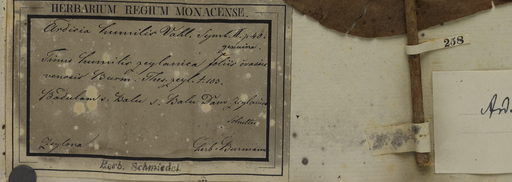 HERBARIUM REGIUM MONACENSE.
Ardisia humilis Vahl. Symb. p. 40.
genuina.
Tinus humilis zeylanica foliis crassis
venosis Burm. Thes. zeyl. t. 103.
Badulam s. Balu s. Balu Dano zeylanis
Zeylona Herb. Burmann
Herb. Schmiedel
258
Ard